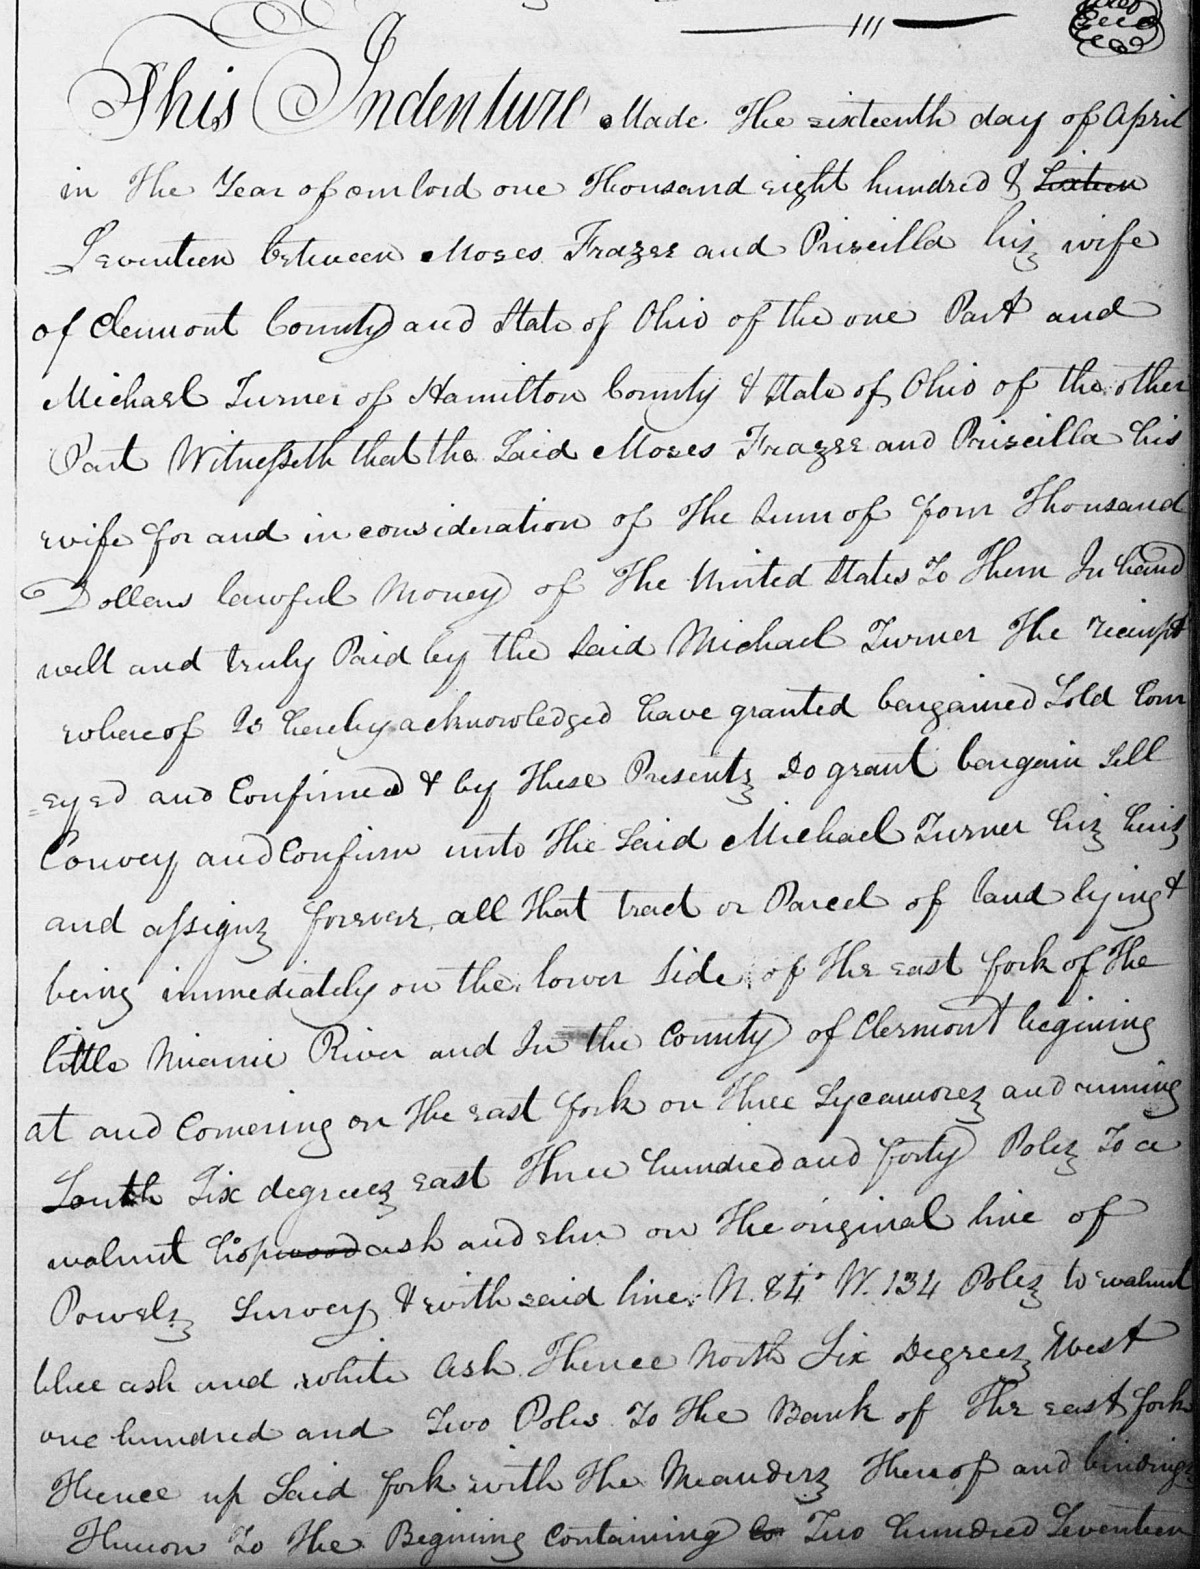 This Indenture Made The sixteenth day of April
in The Year of our lord one Thousand eight hundred & Sixteen
Seventeen between Moses Frazee and Priscilla his wife
of Clermont County and State of Ohio of the one Part and
Michael Turner of Hamilton County & State of Ohio of the other
Part Witnesseth that the Said Moses Frazee and Priscilla his
wife for and in consideration of The Sum of four Thousand
Dollars lawful Money of The United States To Them In hand
well and truly Paid by the Said Michael Turner The reciept
whereof Is hereby acknowledged have granted bargained Sold Conv
=eyed and Confirmed & by These Presents Do grant bargain Sell
Convey and Confirm unto The Said Michael Turner his heirs
and assigns forever all That tract or Parcel of land lying &
being immediately on the lower Side of The east fork of The
little Miami River and In the County of Clermont begining
at and Cornering on The east fork on Three Sycamores and running
South Six degrees east Three hundred and forty Poles To a
walnut hopwood ash and elm on The original line of
Powels Survey & with said line N. 84° W. 134 Poles to walnut
blue ash and white Ash Thence North Six Degrees West
one hundred and Two Poles To The Bank of The east fork
Thence up Said fork with The Meanders Thereof and binding
Thereon To The Begining Containing Two hundred Seventeen